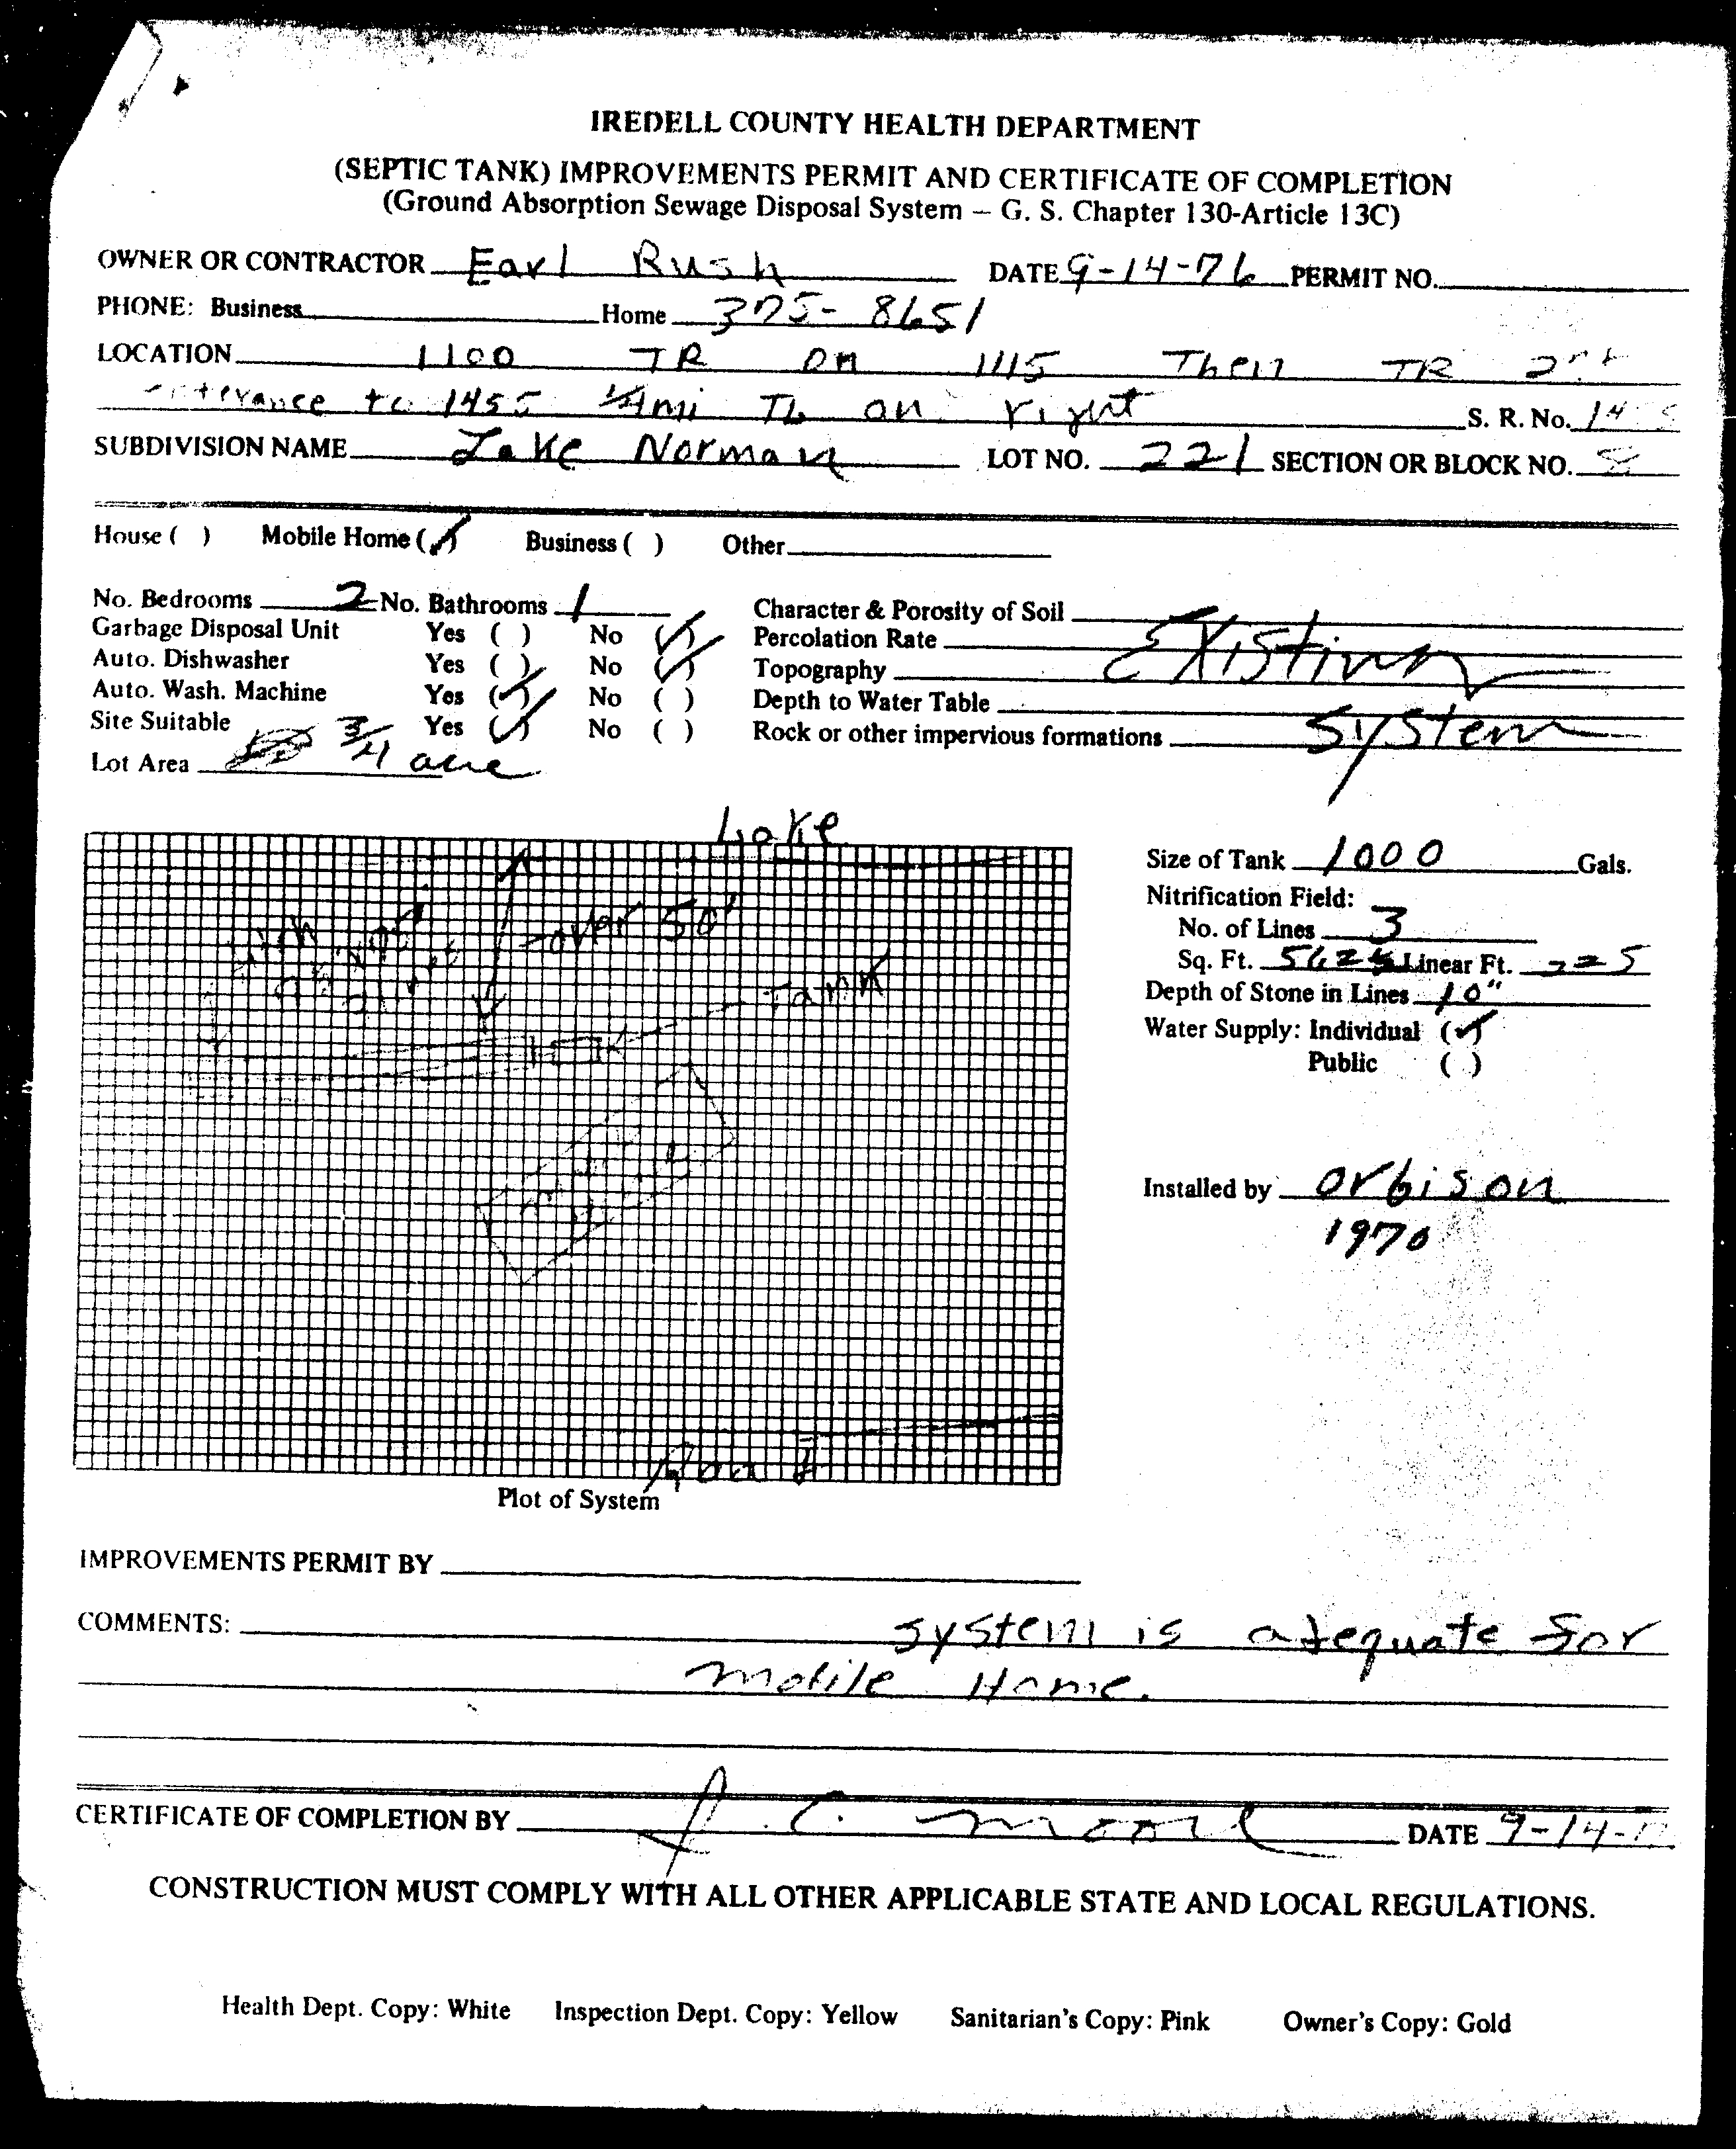 IREDELL COUNTY HEALTH DEPARTMENT
(SEPTIC TANK) IMPROVEMENTS PERMIT AND CERTIFICATE OF COMPLETION
(Ground Absorption Sewage Disposal System – G. S. Chapter 130-Article 13C)
OWNER OR CONTRACTOR Earl Rush DATE 9-14-76 PERMIT NO.
PHONE: Business Home 375-8651
LOCATION 1100 TR on 1115 Then TR 2nd
to 1455 1/4 mi TL on right S. R. No.
SUBDIVISION NAME Lake Norman LOT NO. 221 SECTION OR BLOCK NO.
House ( ) Mobile Home (✓) Business ( ) Other
No. Bedrooms 2 No. Bathrooms 1 Character & Porosity of Soil
Garbage Disposal Unit Yes ( ) No (✓) Percolation Rate Existing
Auto. Dishwasher Yes ( ) No (✓) Topography
Auto. Wash. Machine Yes (✓) No ( ) Depth to Water Table
Site Suitable Yes (✓) No ( ) Rock or other impervious formations System
Lot Area 3/4 acre
Lake
Size of Tank 1000 Gals.
Nitrification Field:
over 50'
No. of Lines 3
Sq. Ft. Linear Ft.
Tank
Depth of Stone in Lines 10"
Water Supply: Individual (✓)
Public ( )
Installed by Orbison
1970
Road
Plot of System
IMPROVEMENTS PERMIT BY
COMMENTS: system is adequate for
mobile Home.
CERTIFICATE OF COMPLETION BY J. C. Moore DATE 9-14-
CONSTRUCTION MUST COMPLY WITH ALL OTHER APPLICABLE STATE AND LOCAL REGULATIONS.
Health Dept. Copy: White Inspection Dept. Copy: Yellow Sanitarian's Copy: Pink Owner's Copy: Gold